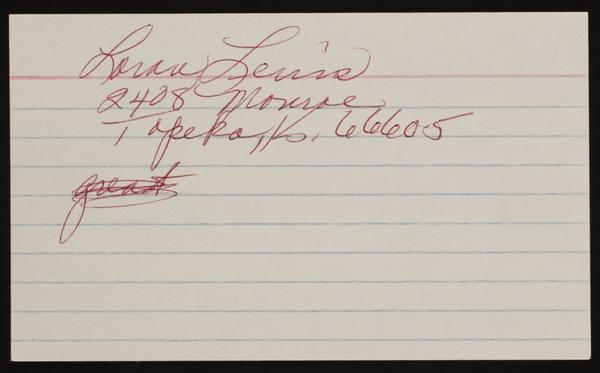 Loran Lewis
2408 Monroe
Topeka, Ks. 66605
great